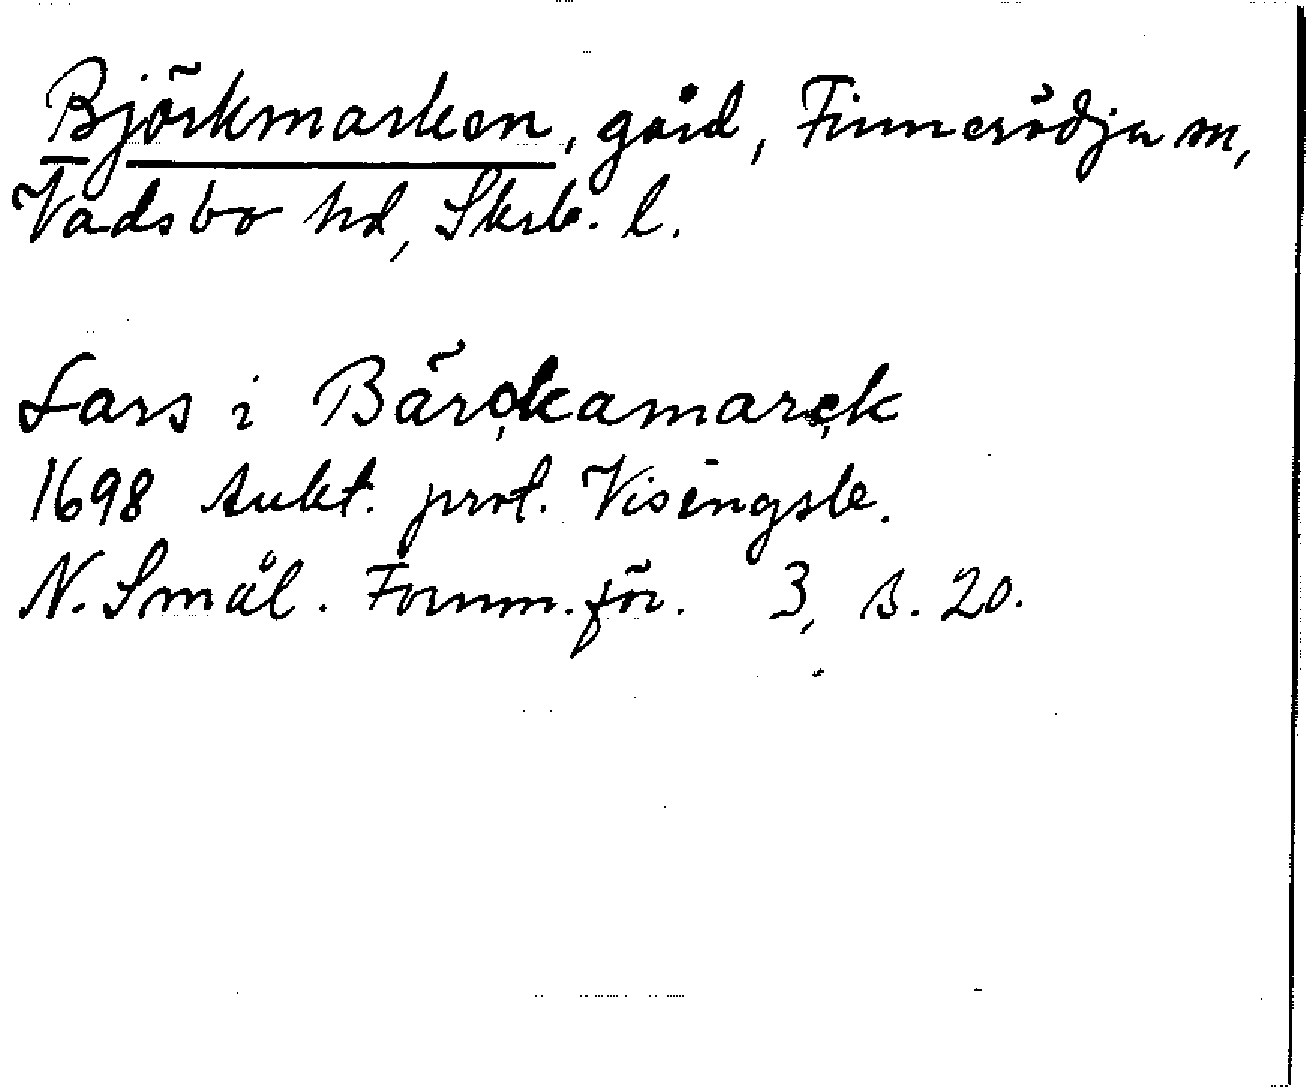 Björkmarken, gård, Finnerödja sn,
Vadsbo hd, Skrb. l.
Lars i Bärckamarck
1698 Aukt. prot. Visingsb.
N. Smål. Fornm. för. 3, s. 20.